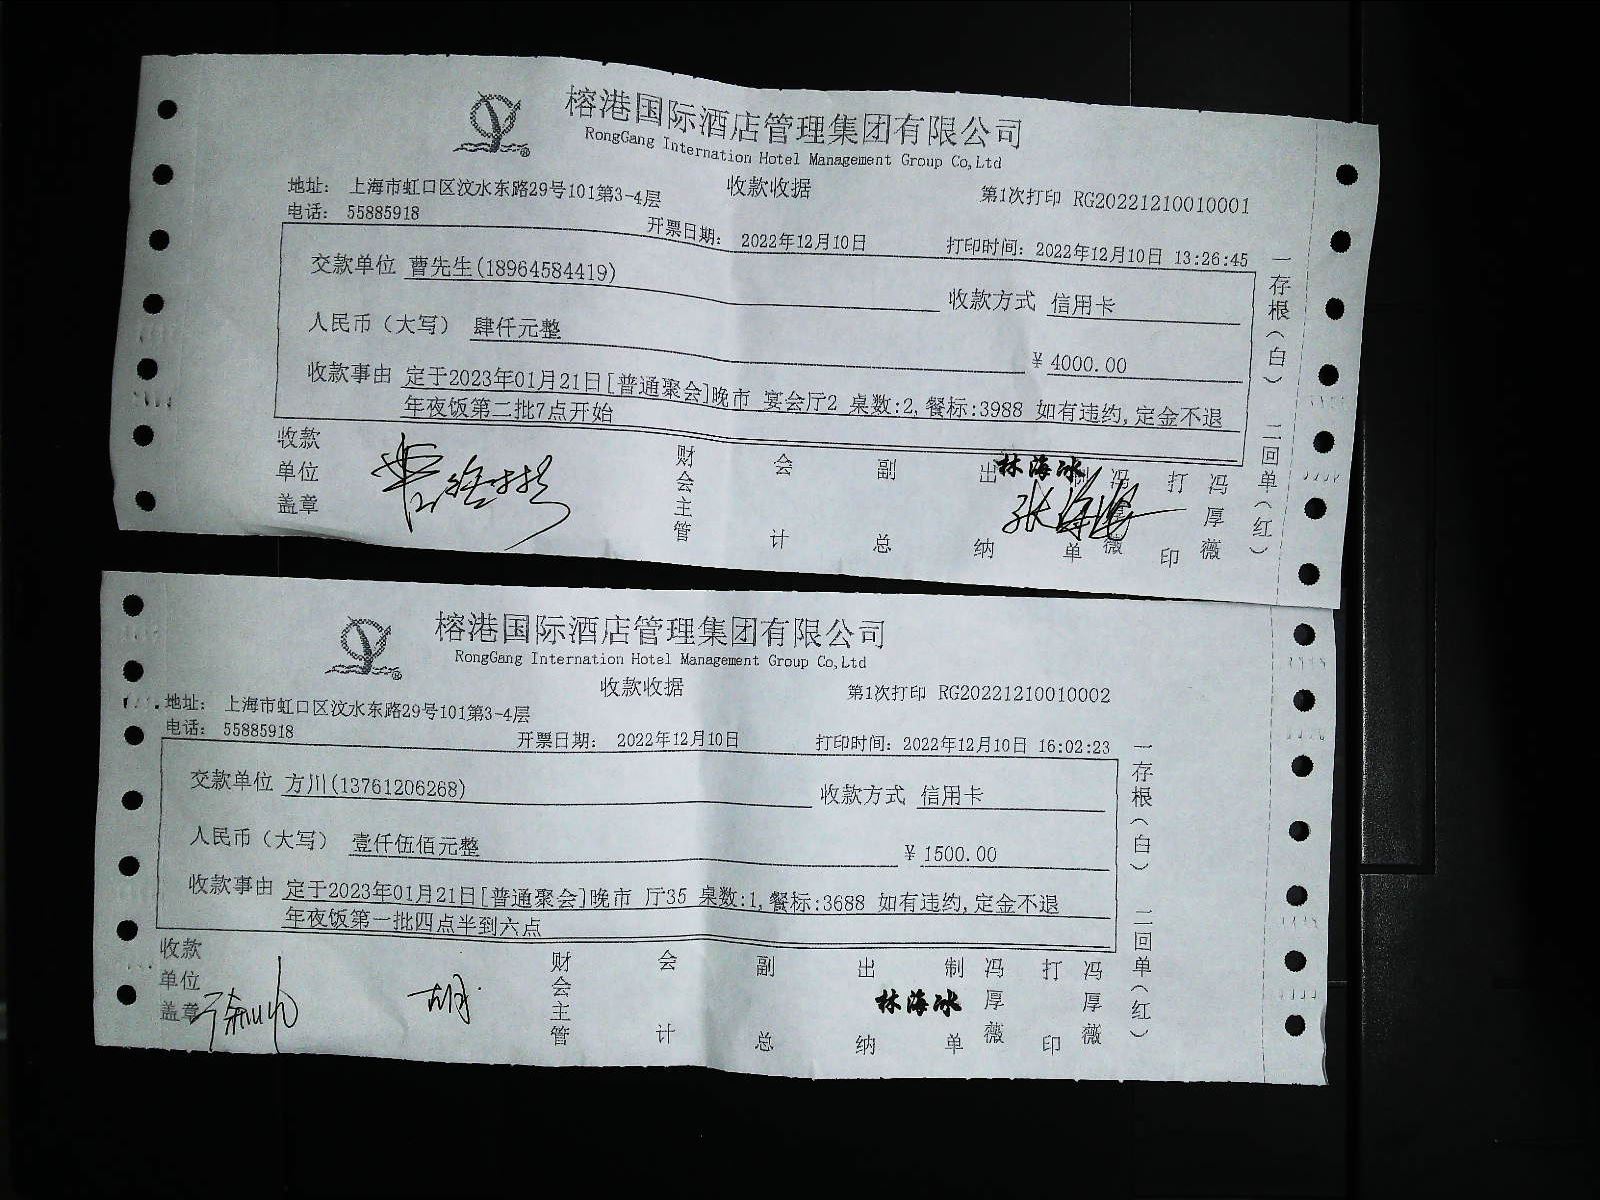 榕港国际酒店管理集团有限公司
RongGang Internation Hotel Management Group Co,Ltd
收款收据
第1次打印 RG20221210010001
地址: 上海市虹口区汶水东路29号101第3-4层
电话: 55885918
开票日期: 2022年12月10日
打印时间: 2022年12月10日 13:26:45
交款单位 曹先生(18964584419)
收款方式 信用卡
人民币（大写） 肆仟元整
¥ 4000.00
收款事由 定于2023年01月21日[普通聚会]晚市 宴会厅2 桌数:2,餐标:3988 如有违约,定金不退
年夜饭第二批7点开始
收款单位盖章
财会主管
会计
副总
出纳
林海冰
制单
冯厚薇
打印
冯厚薇
一存根(白) 二回单(红)
榕港国际酒店管理集团有限公司
RongGang Internation Hotel Management Group Co,Ltd
收款收据
第1次打印 RG20221210010002
地址: 上海市虹口区汶水东路29号101第3-4层
电话: 55885918
开票日期: 2022年12月10日
打印时间: 2022年12月10日 16:02:23
交款单位 方川(13761206268)
收款方式 信用卡
人民币（大写） 壹仟伍佰元整
¥ 1500.00
收款事由 定于2023年01月21日[普通聚会]晚市 厅35 桌数:1,餐标:3688 如有违约,定金不退
年夜饭第一批四点半到六点
收款单位盖章
胡
财会主管
会计
副总
出纳
林海冰
制单
冯厚薇
打印
冯厚薇
一存根(白) 二回单(红)